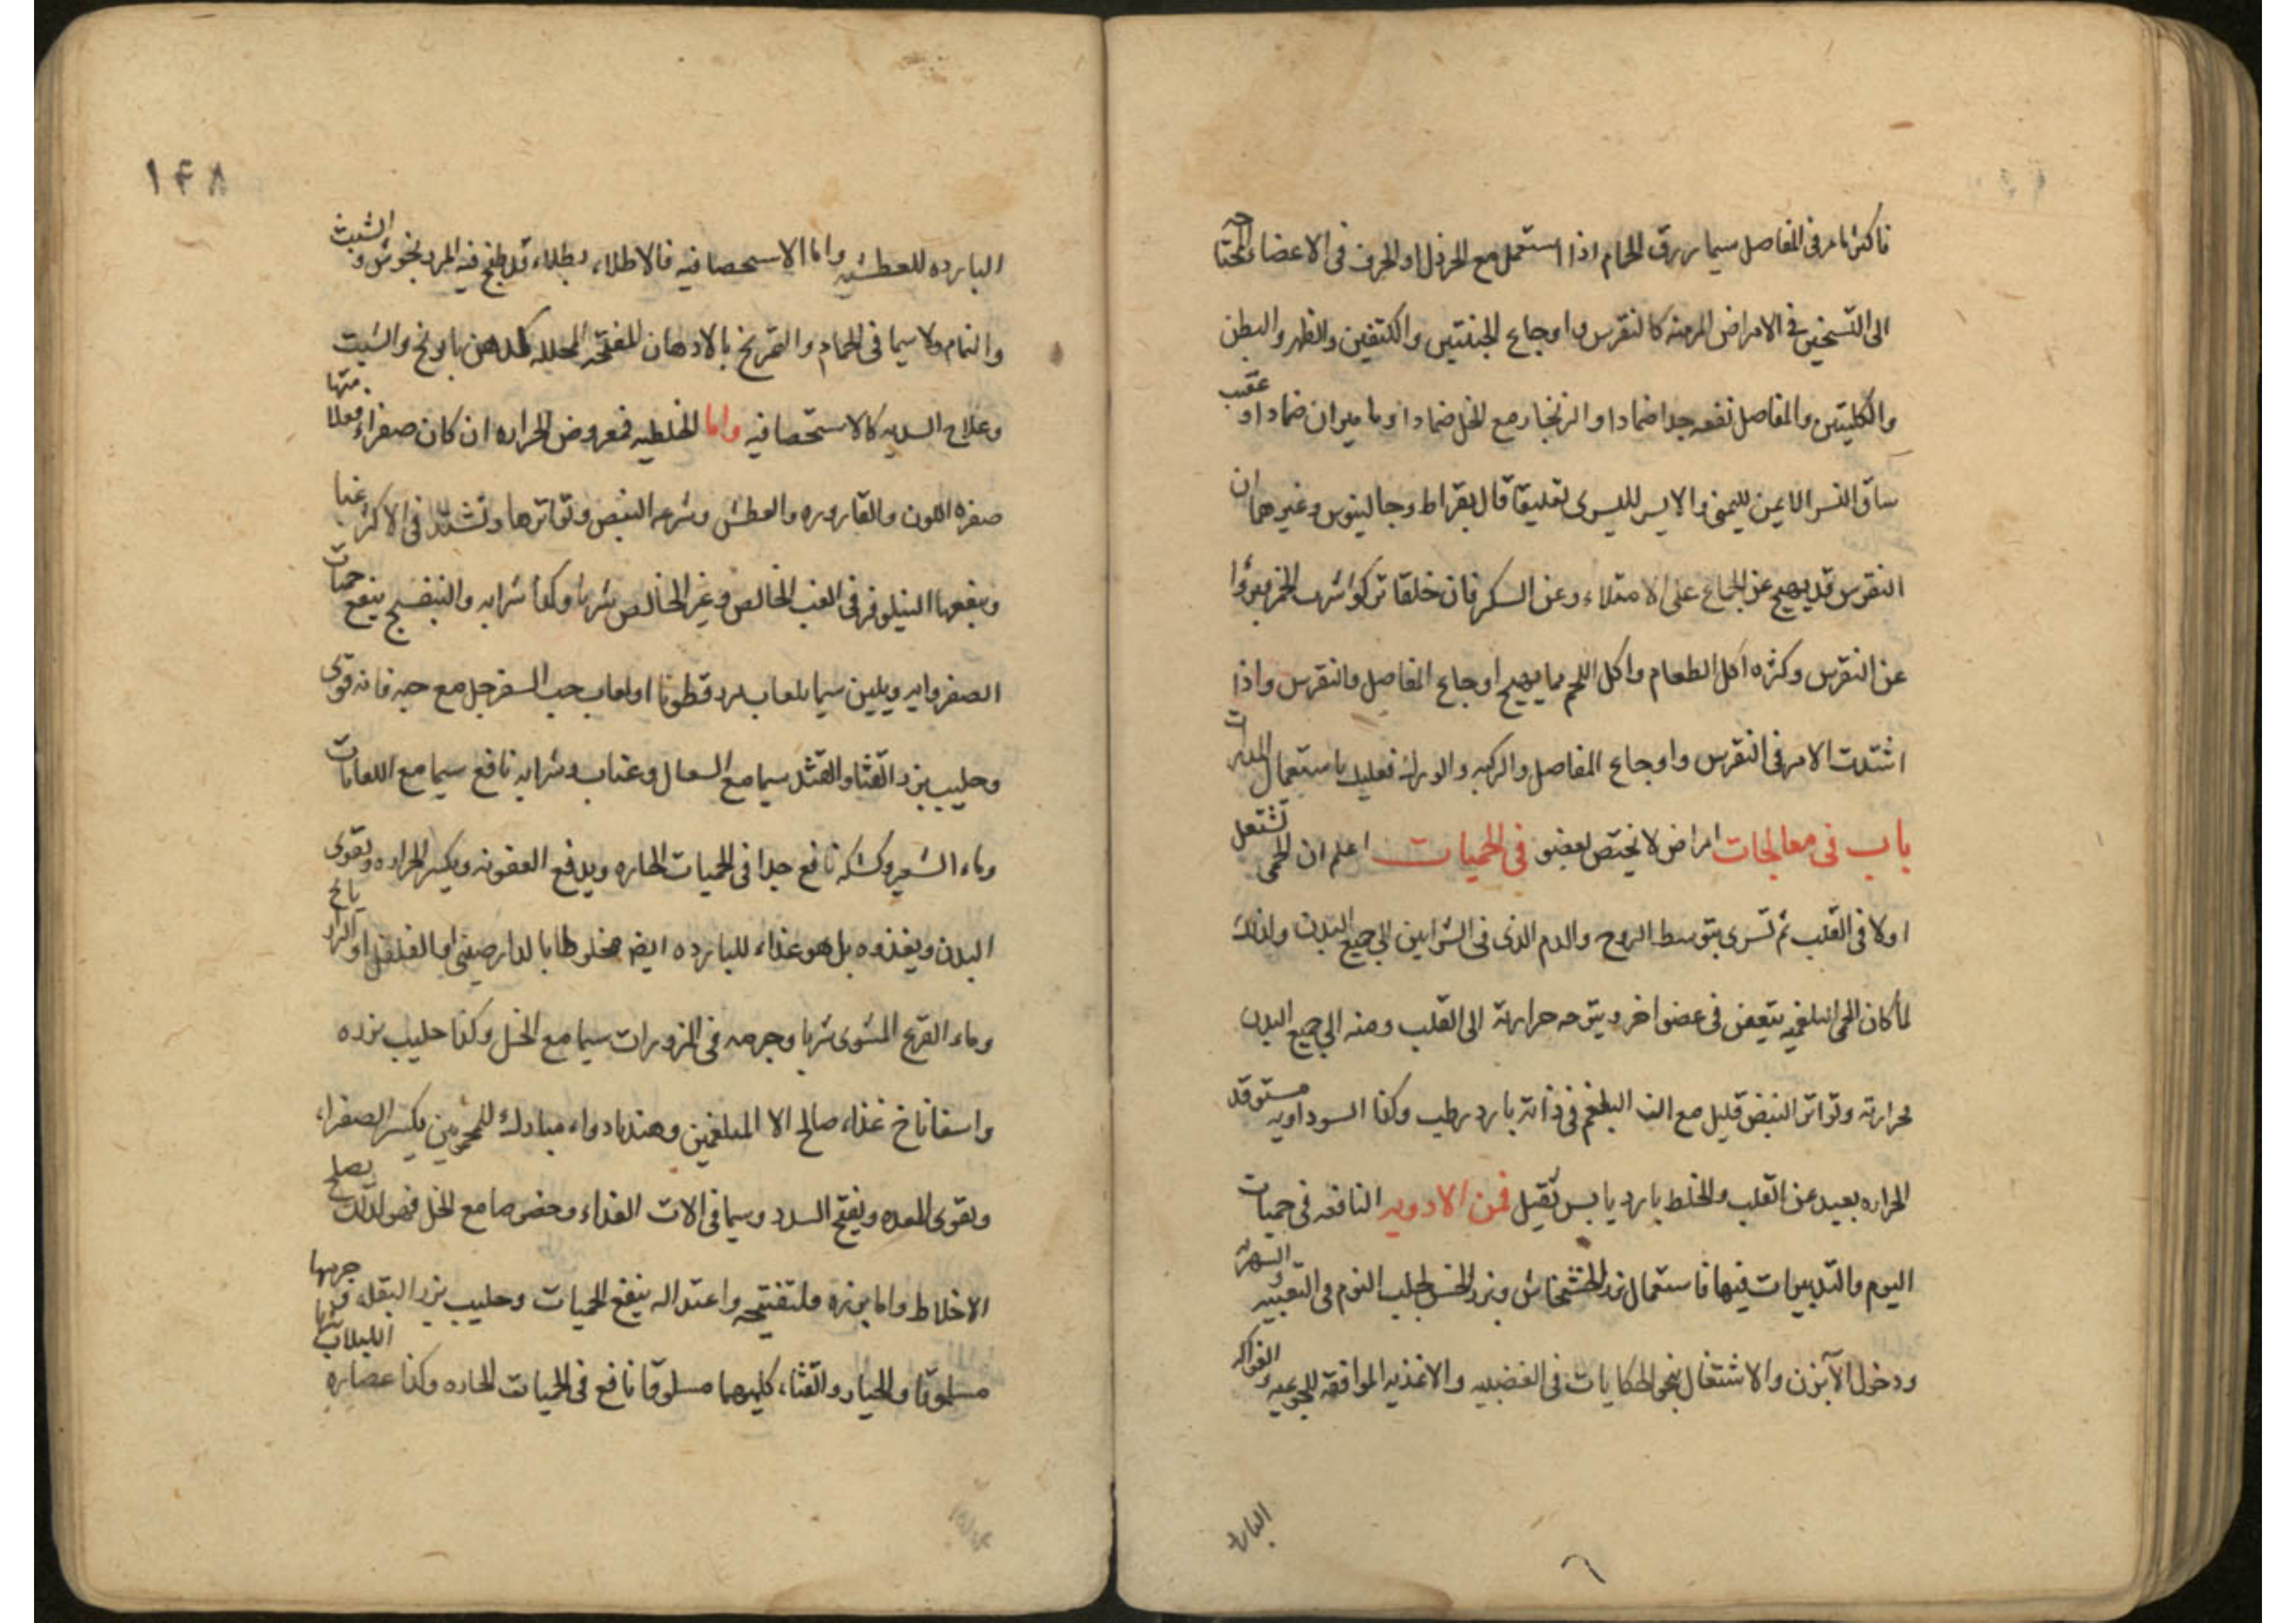 فاكثر ما مر فى المفاصل سيما زرق الحمام اذا استعمل مع الخردل او الحرف فى الاعضاء المحتاجه
الى التسخين فى الامراض المزمنه كالنقرس و اوجاع الجنبتين والكتفين والظهر والبطن
والكليتين والمفاصل نفعه جدا ضمادا و الزنجار مع الخل ضمادا و ماميران ضمادا و عقب
ساق النسر الايمن لليمنى والايسر لليسرى تعليقا قال بقراط وجالينوس وغيرهما ان
النقرس قد يهيج عن الجماع على الامتلاء وعن السكر فان خلقا تركوا شرب الخمر فبرؤا
عن النقرس وكثره اكل الطعام واكل اللحم مما يهيج اوجاع المفاصل والنقرس واذا
اشتدت الامر فى النقرس واوجاع المفاصل والركبه والورك فعليك باستعمال المدرات
باب فى معالجات امراض لا يختص بعضو فى الحميات اعلم ان الحمى تشتعل
اولا فى القلب ثم تسرى بتوسط الروح والدم الذى فى الشرايين الى جميع البدن ولذلك
لما كان الحمى البلغميه يتعفن فى عضو اخر و يتوجه حرارته الى القلب ومنه الى جميع البدن
حرارته وتواتر النبض قليل مع ان البلغم فى ذاته بارد رطب وكذا السوداويه مستوقد
الحراره بعيد عن القلب والخلط بارد يابس ثقيل فمن الادويه النافعه فى حميات
اليوم والتدبيرات فيها فاستعمال بزر الخشخاش وبزر الخس لجلب النوم فى التعبيه و السهريه
ودخول الآبزن والاشتغال بنحو الحكايات فى الغضبيه والاغذيه الموافقه للجوعيه و الفواكه
البارده
١۴٨
البارده للعطشيه واما الاستحصافيه فالاطلاء بطلاء قد طبخ فيه المرزنجوش و الشبث
والنمام ولا سيما فى الحمام والتمريخ بالادهان المفتحه المحلله كدهن بابونج والشبت
وعلاج السديه كالاستحصافيه واما الخلطيه فمعروض الحراره ان كان صفراء فعلامتها
صفره اللون والقاروره والعطش وسرعه النبض وتواترها وتشتد فى الاكثر غبا
وينفعها النيلوفر فى الغب الخالص وغير الخالص شربا وكذا شرابه والبنفسج ينفع حميات
الصفراويه ويلين سيما بلعاب بزرقطونا او لعاب حب السفرجل مع حبه فانه قوى
وحليب بزر القثا والقثد سيما مع السعال وعناب وشرابه نافع سيما مع اللعابات
وماء الشعير وكشكه نافع جدا فى الحميات الحاره ويدفع العفونه ويكسر الحراره ويقوى
البدن ويغذوه بل هو غذاء للبارده ايضا مخلوطا بالدارصينى او الفلفل او الرازيانج
وماء القرع المشوى شربا وجرمه فى المزورات سيما مع الخل وكذا حليب بزره
واسفاناخ غذاء صالح الا المبلغمين وهندبا دواء مبارك للمحمومين يكسر الصفراء
ويقوى المعده ويفتح السدد وسيما فى الات الغذاء وخصوصا مع الخل فهو لذلك يصلح
الاخلاط واما بزره فلتفتيحه واعتداله ينفع الحميات وحليب بزر البقله و جرمها
مسلوقا والخيار والقثاء كليهما مسلوقا نافع فى الحميات الحاره وكذا عصاره اللبلاب